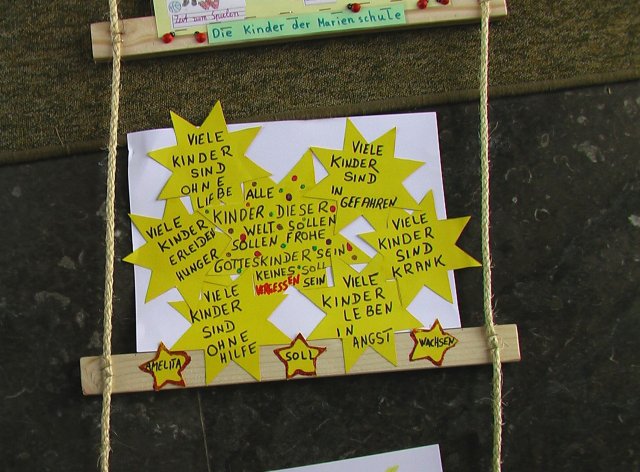 Zeit zum Spielen
Die Kinder der Marienschule
VIELE
KINDER
SIND
OHNE
LIEBE
VIELE
KINDER
SIND
IN
GEFAHREN
ALLE
KINDER DIESER
WELT SOLLEN
SOLLEN FROHE
GOTTESKINDER SEIN
KEINES SOLL
VERGESSEN SEIN
VIELE
KINDER
ERLEIDEN
HUNGER
VIELE
KINDER
SIND
KRANK
VIELE
KINDER
SIND
OHNE
HILFE
VIELE
KINDER
LEBEN
IN
ANGST
AMELITA
SOLL
WACHSEN